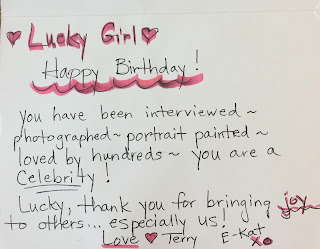 ♥ Lucky Girl ♥
Happy Birthday!
You have been interviewed ~
photographed ~ portrait painted ~
loved by hundreds ~ you are a
Celebrity!
Lucky, thank you for bringing joy
to others... especially us!
Love ♥ Terry E-Kat
xo